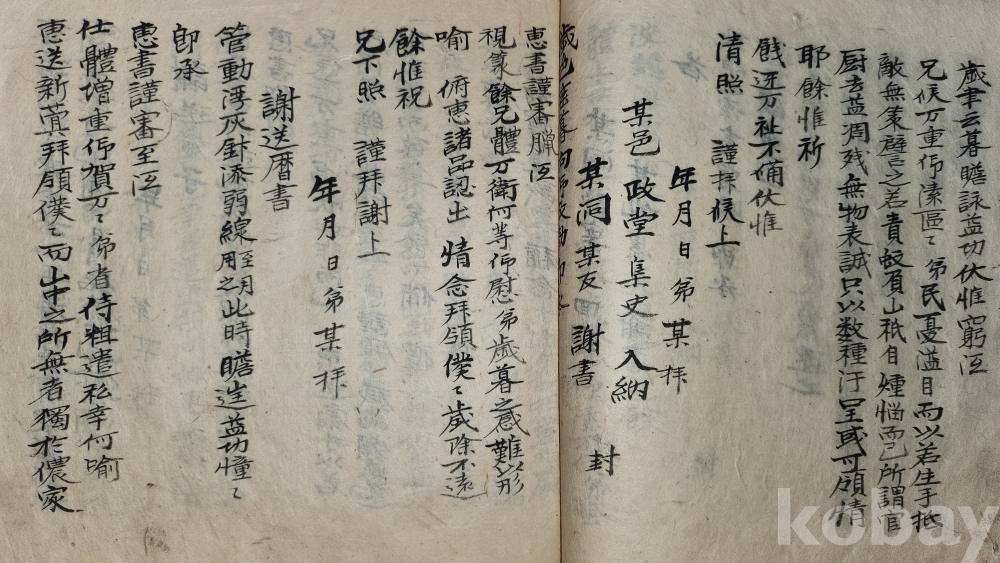 歲聿云暮瞻詠益功伏惟窮沍
兄候万重仰溸區〻弟民憂溢目而以若生手抵
敵無策譬之若責蚊負山秖自煙惱而已所謂官
厨去益凋残無物表誠只以数種汙呈或可頋情
耶餘惟祈
餞迓万祉不備伏惟
清照 謹拝候上
年月日弟某拝
某邑 政堂集史入納
某洞某友謝書 封
惠書謹審臘沍
視篆餘兄體万衛何等仰慰弟歲暮之感難以形
喻 俯惠諸品認出 情念拜領僕〻歲除不遠
餘惟祝
兄下照 謹拜謝上
年月日弟某拝
謝送暦書
管動浮灰針添弱線用至月之此時瞻迬益功憧〻
即承
惠書謹審至沍
仕體增重仰賀万〻弟省侍粗遣私幸何喻
惠送新蓂拜領僕〻而山中之所無者獨於儂家
kobay